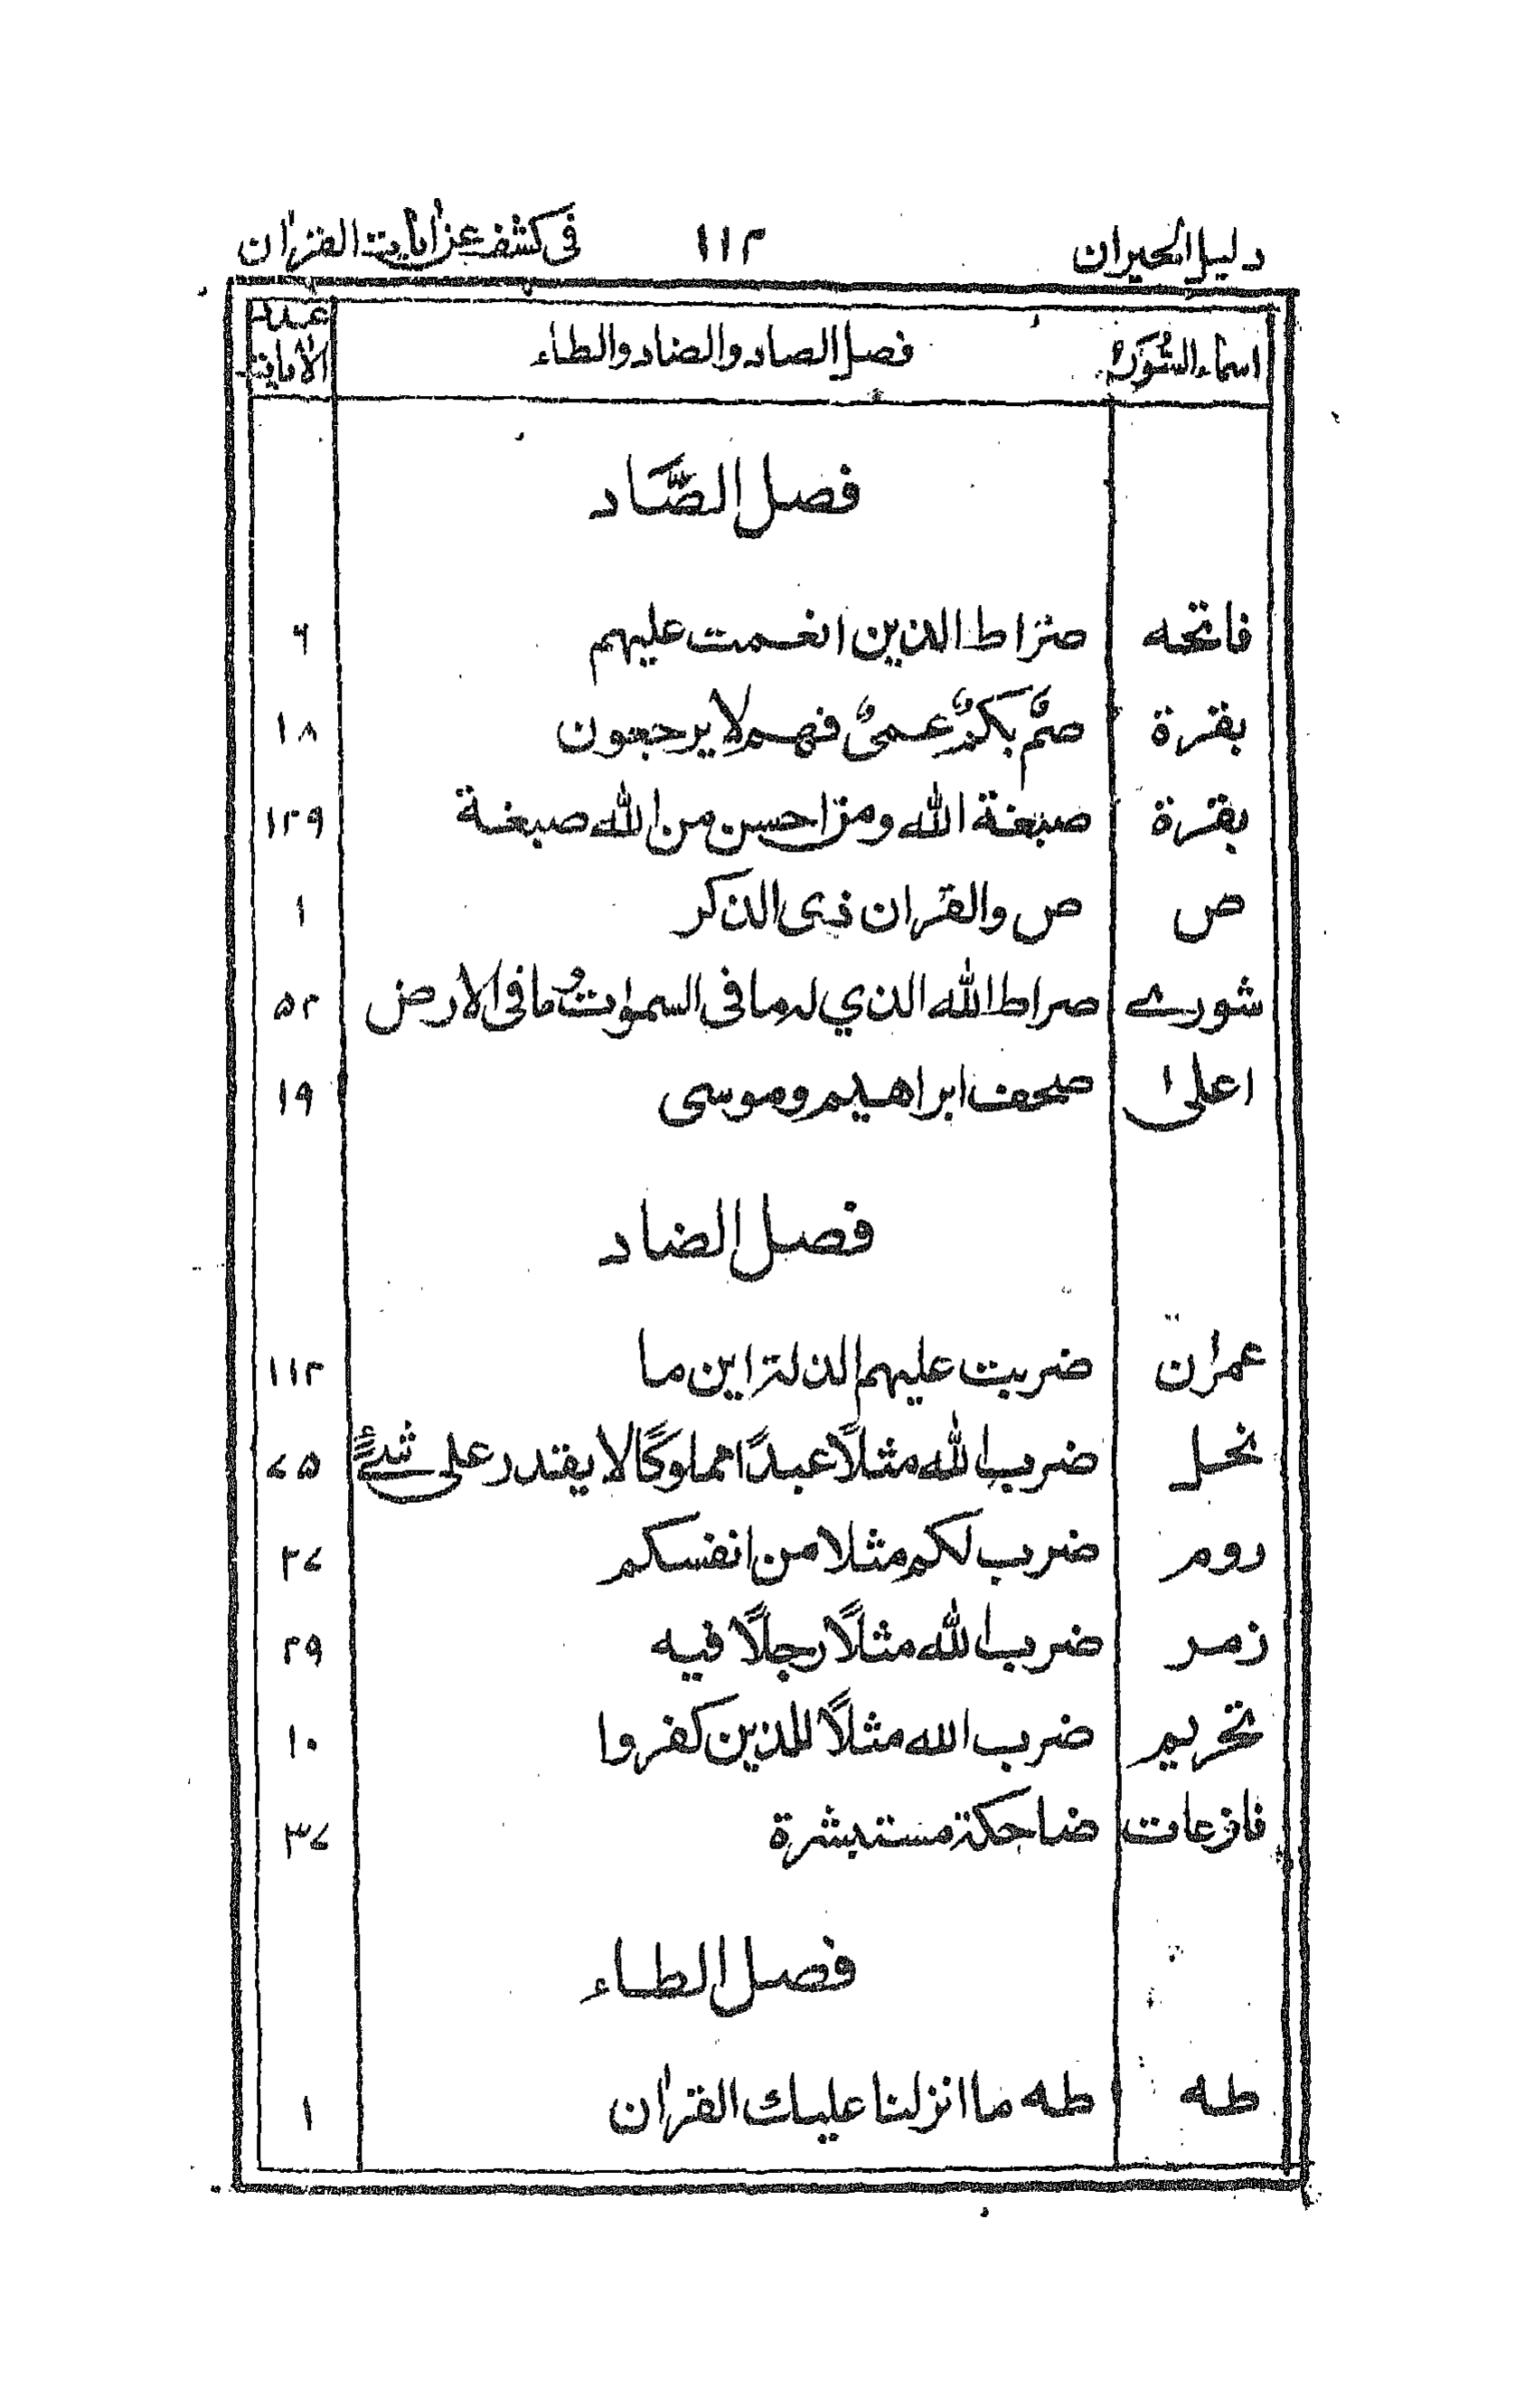 دليل الحيران ١١٢ في كشف عن آيات القرآن
اسماء السور فصل الصاد والضاد والطاء عدد الأيات
فصل الصَّاد
فاتحه صراط الذين انعمت عليهم ٦
بقرة صمٌّ بكمٌ عمىٌ فهم لا يرجعون ١٨
بقرة صبغة الله ومن احسن من الله صبغة ١٣٩
ص ص والقران ذى الذكر ١
شورے صراط الله الذي له ما فى السموات وما فى الارض ٥٢
اعلى صحف ابراهيم وموسى ١٩
فصل الضاد
عمران ضربت عليهم الذلة اين ما ١١٢
نحل ضرب الله مثلاً عبدًا مملوكًا لا يقدر على شئٍ ٧٥
روم ضرب لكم مثلا من انفسكم ٢٧
زمر ضرب الله مثلاً رجلاً فيه ٢٩
تحريم ضرب الله مثلاً للذين كفروا ١٠
نازعات ضاحكة مستبشرة ٣٧
فصل الطاء
طه طه ما انزلنا عليك القرآن ١